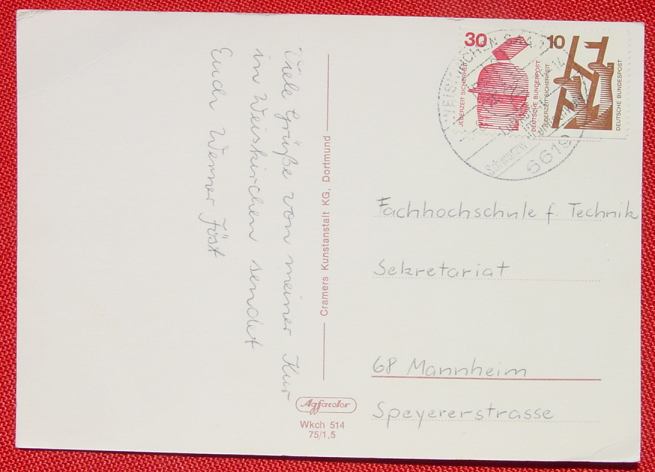 Viele Grüße von meiner Kur
in Weiskirchen sendet
Euch Werner Jöst
Cramers Kunstanstalt KG, Dortmund
Agfacolor
Wkch 514
75/1,5
30
JEDERZEIT SICHERHEIT
DEUTSCHE BUNDESPOST
10
JEDERZEIT SICHERHEIT
DEUTSCHE BUNDESPOST
6619
Fachhochschule f. Technik
Sekretariat
68 Mannheim
Speyererstrasse